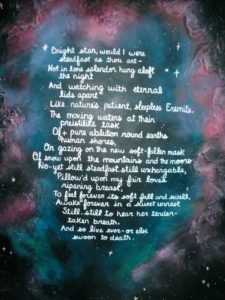 Bright star, would I were
steadfast as thou art -
Not in lone splendor hung aloft
the night
And watching with eternal
lids apart
Like nature's patient, sleepless Eremite,
The moving waters at their
priestlike task
Of pure ablution round earths
human shores,
Or gazing on the new soft-fallen mask
Of snow upon the mountains and the moors
No-yet still steadfast, still unchangable,
Pillow'd upon my fair loves
ripening breast,
To feel forever its soft fall and swell,
Awake forever in a sweet unrest
Still, still to hear her tender-
taken breath,
And so live ever-or else
swoon to death.